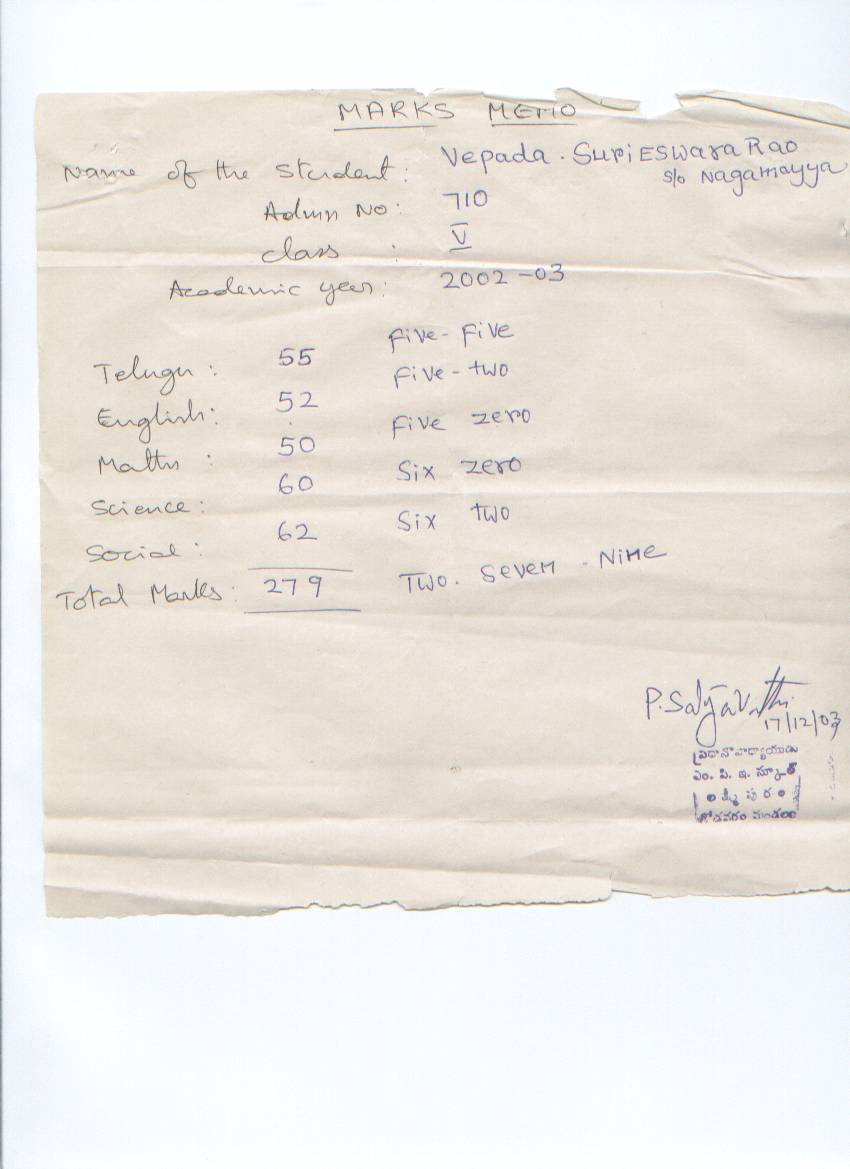 MARKS MEMO
Name of the Student: Vepada. SuriESwara Rao
S/o Nagamayya
Admn No: 710
class : V
Academic year: 2002-03
Telugu: 55 Five-Five
English: 52 Five-two
Maths: 50 Five zero
Science: 60 Six zero
Social: 62 Six two
Total Marks: 279 Two. Seven-Nine
P. Satyavathi
17/12/03
ప్రధానోపాధ్యాయుడు
ఎం. పి. ఇ. స్కూల్
మండలం